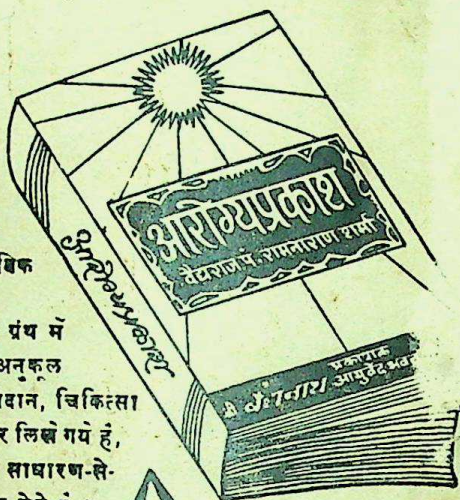 आरोग्यप्रकाश
वैद्यराज पं. रामनारायण शर्मा
आरोग्यप्रकाश
प्रकाशक
श्री बैद्यनाथ आयुर्वेद भवन
धिक
ग्रंथ में
अनुकूल
दान, चिकित्सा
र लिखे गये हैं,
साधारण-से-